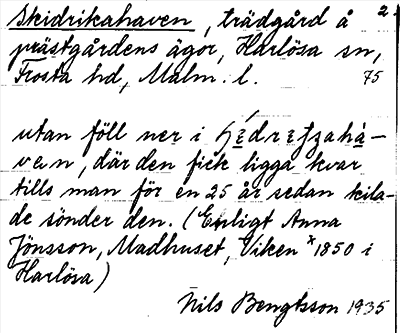 Skidrikahaven, trädgård å 2.
prästgårdens ägor, Harlösa sn,
Frosta hd, Malm. l. 75
utan föll ner i
ven, där den fick ligga kvar
tills man för en 25 år sedan kila-
de sönder den. (Enligt Anna
Jönsson, Madhuset, Viken *1850 i
Harlösa)
Nils Bengtsson 1935